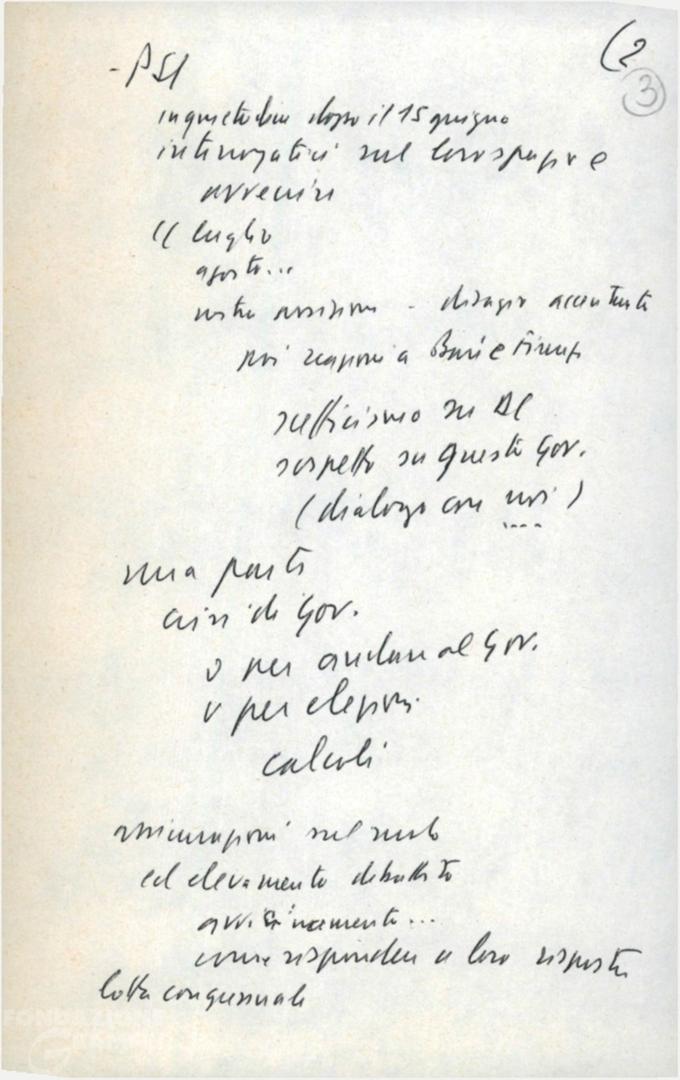 (2
3
- PSI
inquietudine dopo il 15 giugno
interrogativi sul loro spazio e
avvenire
(( luglio
agosto...
nostra posizione - disagio accentuato
poi reazioni a Bari e Firenze
scetticismo su DC
sospetto su questo Gov.
(dialogo con noi)
una parte
crisi di Gov.
o per andare al Gov.
o per elezioni
calcoli
assicurazioni sul ruolo
ed elevamento dibattito
avvicinamento...
come rispondere a loro risposta
lotta congressuale
FONDAZIONE
GRAMSCI